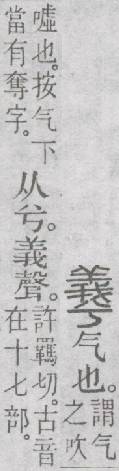 羲气也。謂气之吹
噓也。按气下當有奪字。从兮。義聲。許羈切。古音在十七部。